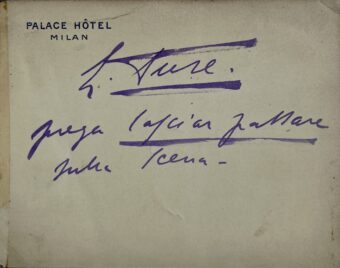 PALACE HÔTEL
MILAN
E. Duse.
prega lasciar passare
sulla scena -